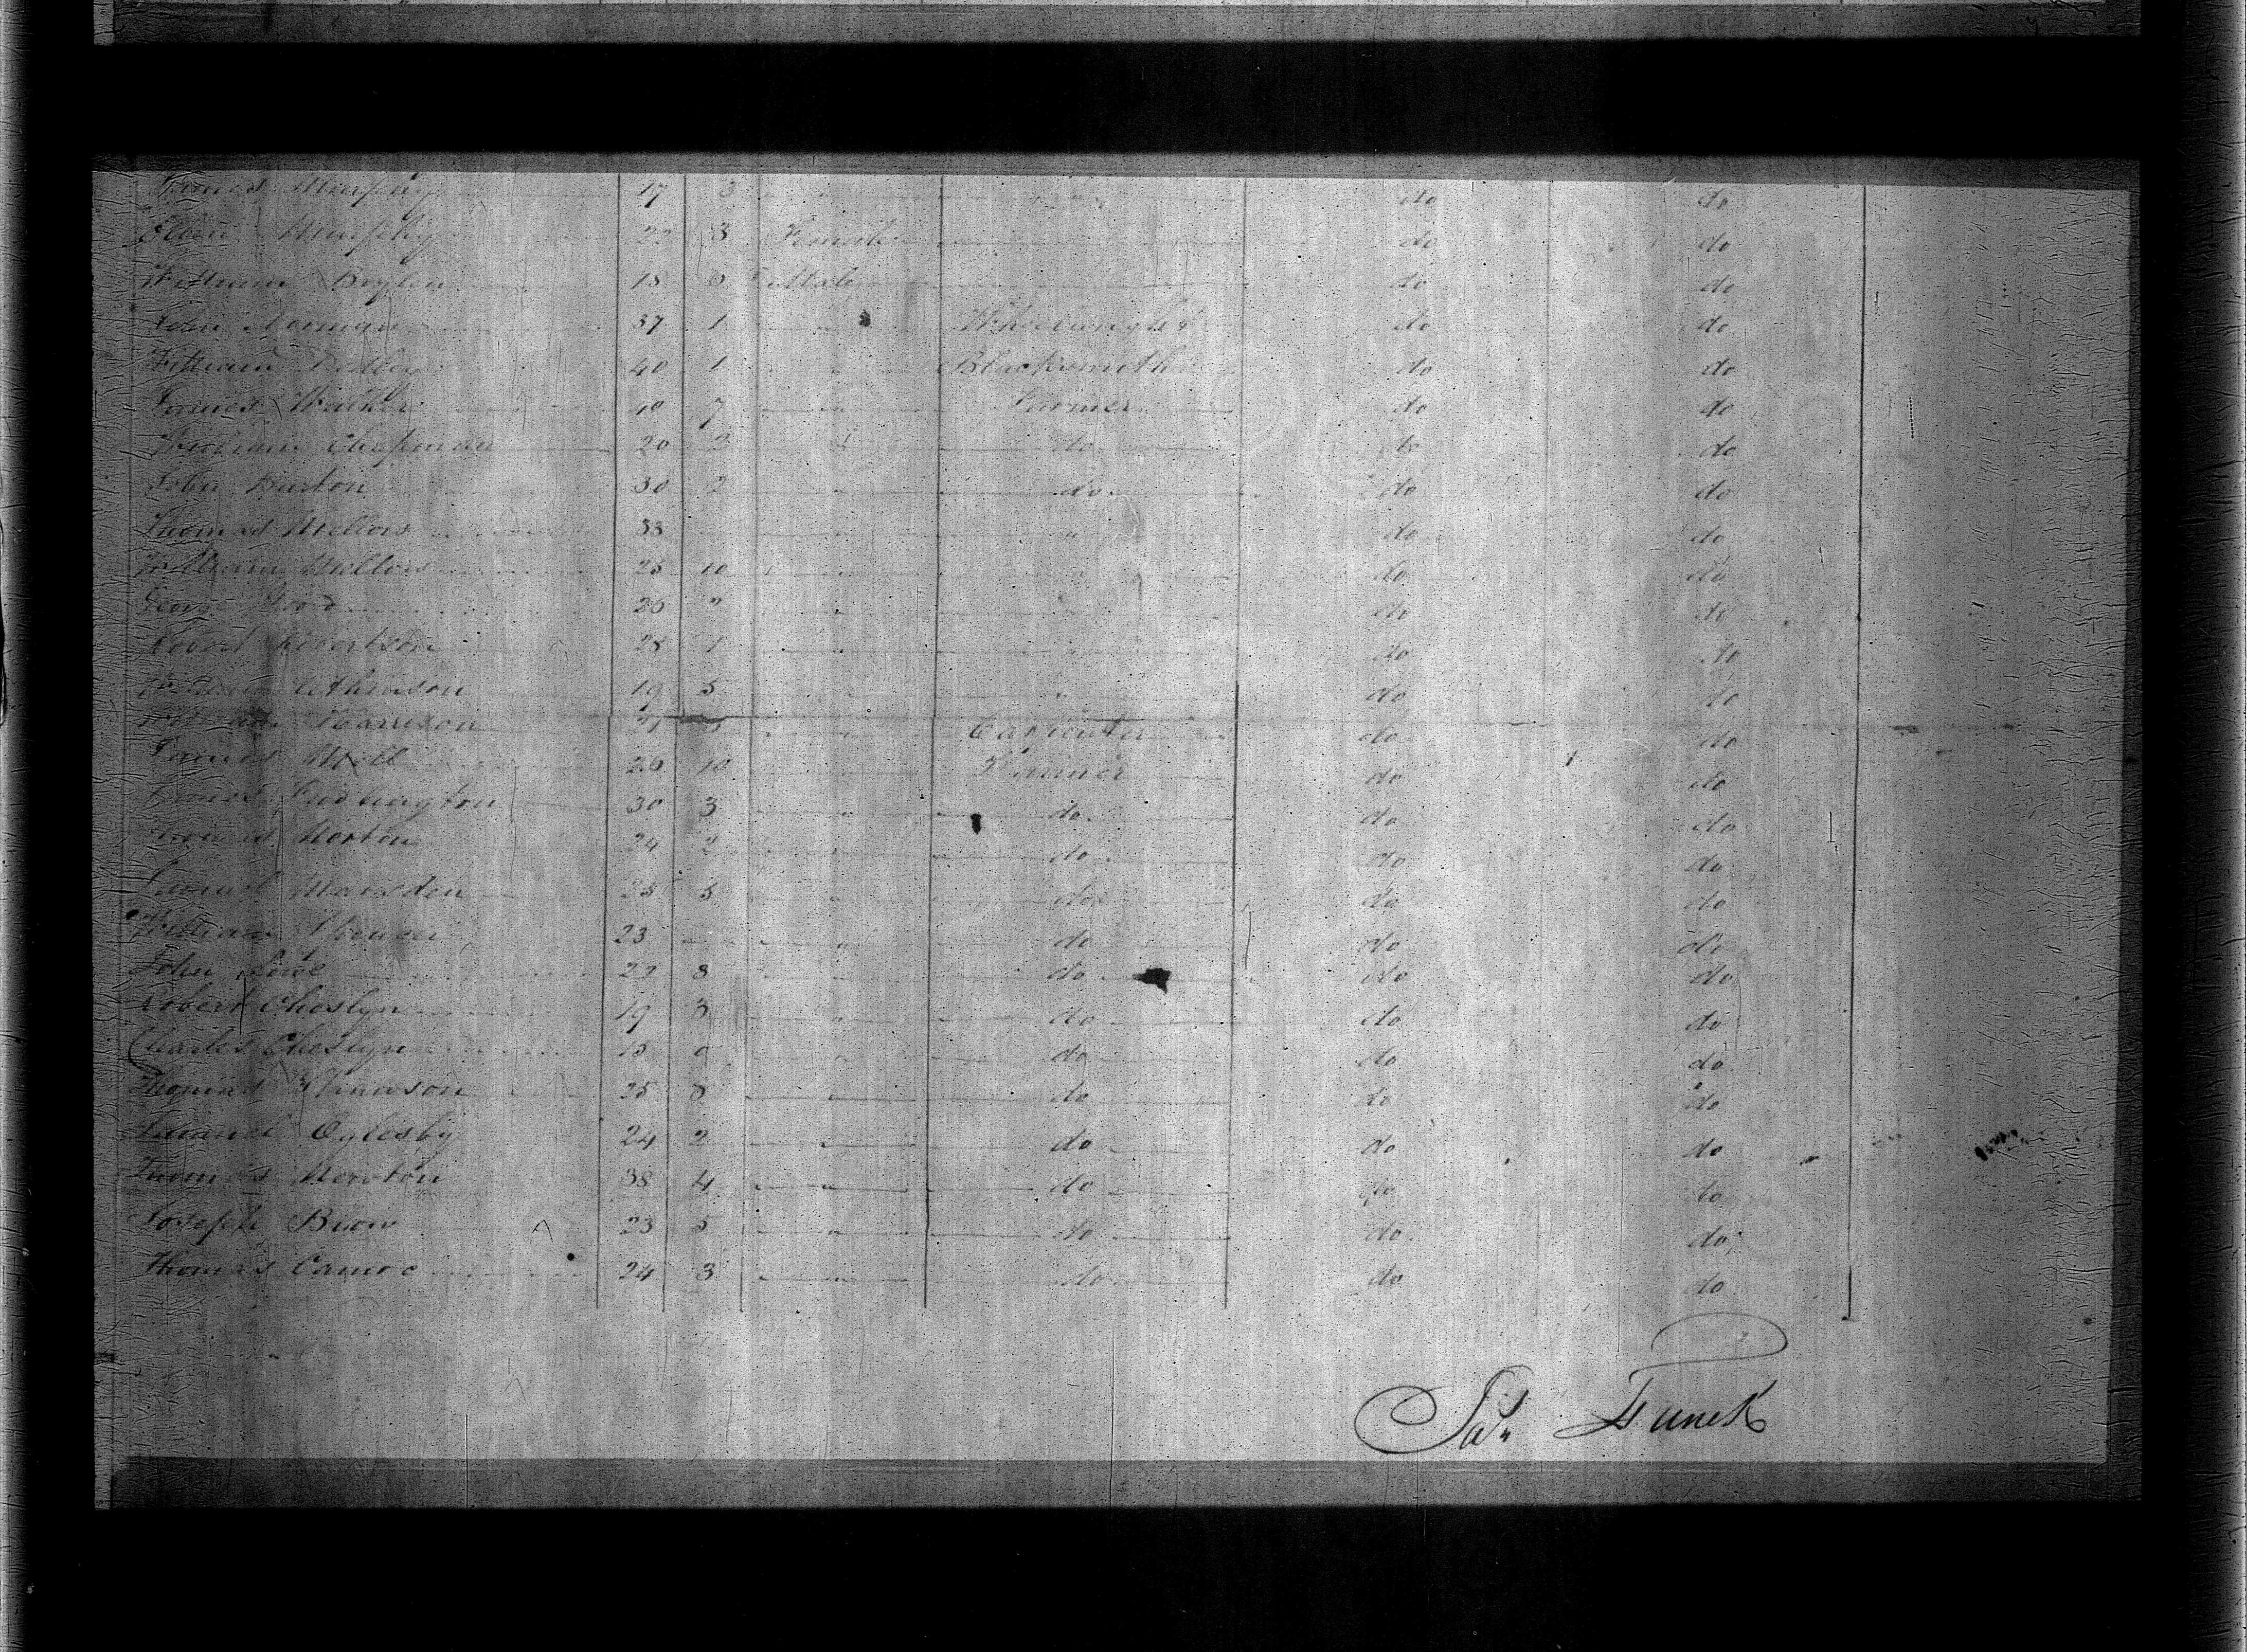 James Murphy 17 3 " do do
Ellen Murphy 22 3 Female do do
William 18 8 Male do do
John Norman 37 1 " Wheelwright do do
William 40 1 " Blacksmith do do
James Walker 40 7 " Farmer do do
William Chapman 20 2 " do do do
John Burton 30 2 " do do do
Thomas Mellors 33 " " do do
William Mellors 25 10 " " do do
George 26 " " " do do
Robert Robertson 28 1 " " do do
William Atkinson 19 5 " " do do
William Harrison 21 " Carpenter do do
James 26 10 " Farmer do do
James Luddington 30 3 " do do do
Thomas Morton 24 2 " do do do
Samuel Marsden 25 5 " do do do
William Spencer 23 " do do do
John Lowe 22 8 " do do do
Robert Choslyn 19 8 " do do do
Charles Choslyn 15 " do do do
Thomas 25 8 " do do do
Samuel Oglesby 24 2 " do do do
Thomas Newton 38 4 " do do do
Joseph Brow 23 5 " do do do
Thomas Camoc 24 3 " do do do
Funck